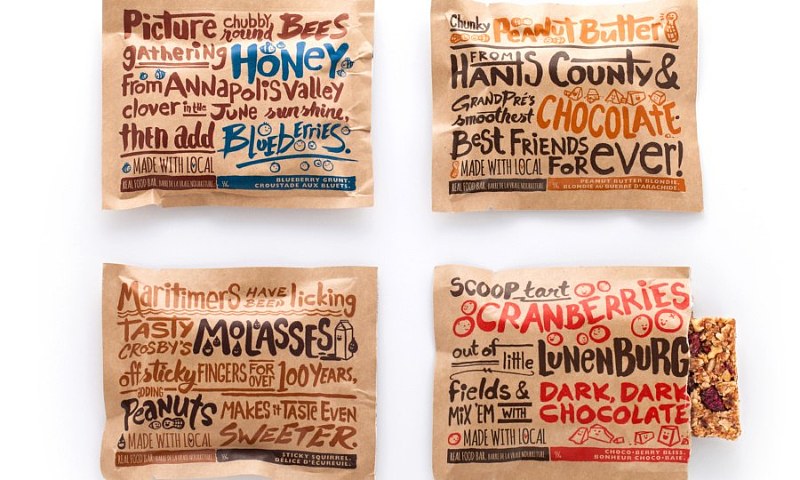 Picture chubby round BEES
gathering HONEY
from ANNAPOLIS VALLEY
clover in the JUNE sunshine,
then add Blueberries.
MADE WITH LOCAL
REAL FOOD BAR. BARRE DE LA VRAIE NOURRITURE.
BLUEBERRY GRUNT.
CROUSTADE AUX BLUETS.
Chunky PEANUT BUTTER
FROM
HANTS COUNTY &
GRAND PRÉ'S
smoothest CHOCOLATE.
BEST FRIENDS
FOR ever!
MADE WITH LOCAL
REAL FOOD BAR. BARRE DE LA VRAIE NOURRITURE.
PEANUT BUTTER BLONDIE.
BLONDIE AU BEURRE D'ARACHIDE.
Maritimers HAVE BEEN licking
TASTY CROSBY'S MOLASSES
off sticky FINGERS FOR OVER 100 YEARS,
ADDING
Peanuts MAKES it TASTE EVEN
SWEETER.
MADE WITH LOCAL
REAL FOOD BAR. BARRE DE LA VRAIE NOURRITURE.
STICKY SQUIRREL.
DÉLICE D'ÉCUREUIL.
SCOOP tart
CRANBERRIES
out of little LUNENBURG
fields & DARK, DARK
MIX 'EM WITH CHOCOLATE
MADE WITH LOCAL
REAL FOOD BAR. BARRE DE LA VRAIE NOURRITURE.
CHOCO-BERRY BLISS.
BONHEUR CHOCO-BAIE.